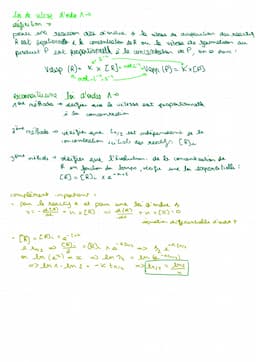 loi de vitesse d'ordre 1 →
définition →
pour une réaction dite d'ordre 1, la vitesse de disparition du réactif
R est proportionnelle à la concentration de R ou la vitesse de formation du
produit P est proportionnelle à la concentration de P, on a donc :
Vdisp (R) = K x [R] = Vapp (P) = K x [P]
mol.L⁻¹.s⁻¹
reconnaître une loi d'ordre 1 →
1ère méthode → vérifier que la vitesse est proportionnelle
à la concentration
2ème méthode → vérifier que t1/2 est indépendante de la
concentration initiale des réactifs [R]i
3ème méthode → vérifier que l'évolution de la concentration de
R en fonction du temps, vérifie une loi exponentielle :
[R] = [R]i x e^-kxt
complément important :
- pour le réactif R et pour une loi d'ordre 1
v = - d[R]/dt = k x [R] ⇔ d[R]/dt + k x [R] = 0
équation différentielle d'ordre 1
- [R] = [R]i x e^-kxt